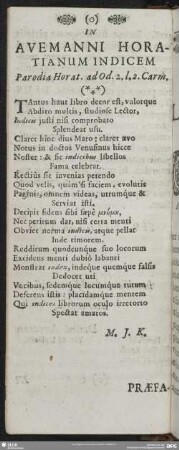 (o)
IN
AVEMANNI HORA-
TIANUM INDICEM
Parodia Horat. ad Od. 2. l. 2. Carm.
(*✥*)
TAntus haut libro decor est, valorque
Abdito multis, studiose Lector,
Indice justi nisi comprobato
Splendeat usu.
Claret hinc dius Maro; claret ævo
Notus in doctos Venusinus hicce
Noster: & sic indicibus libellos
Fama celebrat.
Rectius sic invenias petendo
Quod velis, quàm si faciem, evolutis
Paginis, omnem videas, utrumque &
Serviat isti.
Decipit fidens sibi sæpè
Nec peritum dat, nisi certa menti
Obviet norma indicis, atque pellat
Inde timorem.
Redditum quodcunque suo locorum
Excidens menti dubiò labanti
Monstrat index, indeque quemque falsis
Dedocet uti
Vocibus, sedemque locumque tutum
Deferens isti: placidamque mentem
Qui indices librorum oculo irretorto
Spectat amatos.
M. J. K.
PRÆFA-